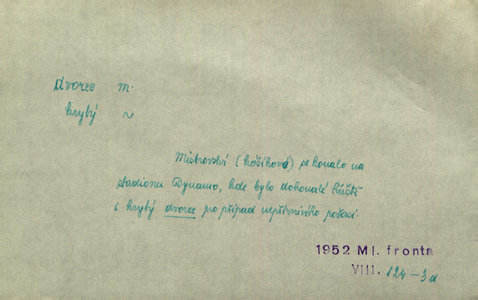 dvorec m.
krytý ~
Mistrovství (košíkové) se konalo na
stadionu Dynamo, kde bylo dokonalé hřiště
i krytý dvorec pro případ nepříznivého počasí.
1952 Ml. fronta
VIII. 124-3d